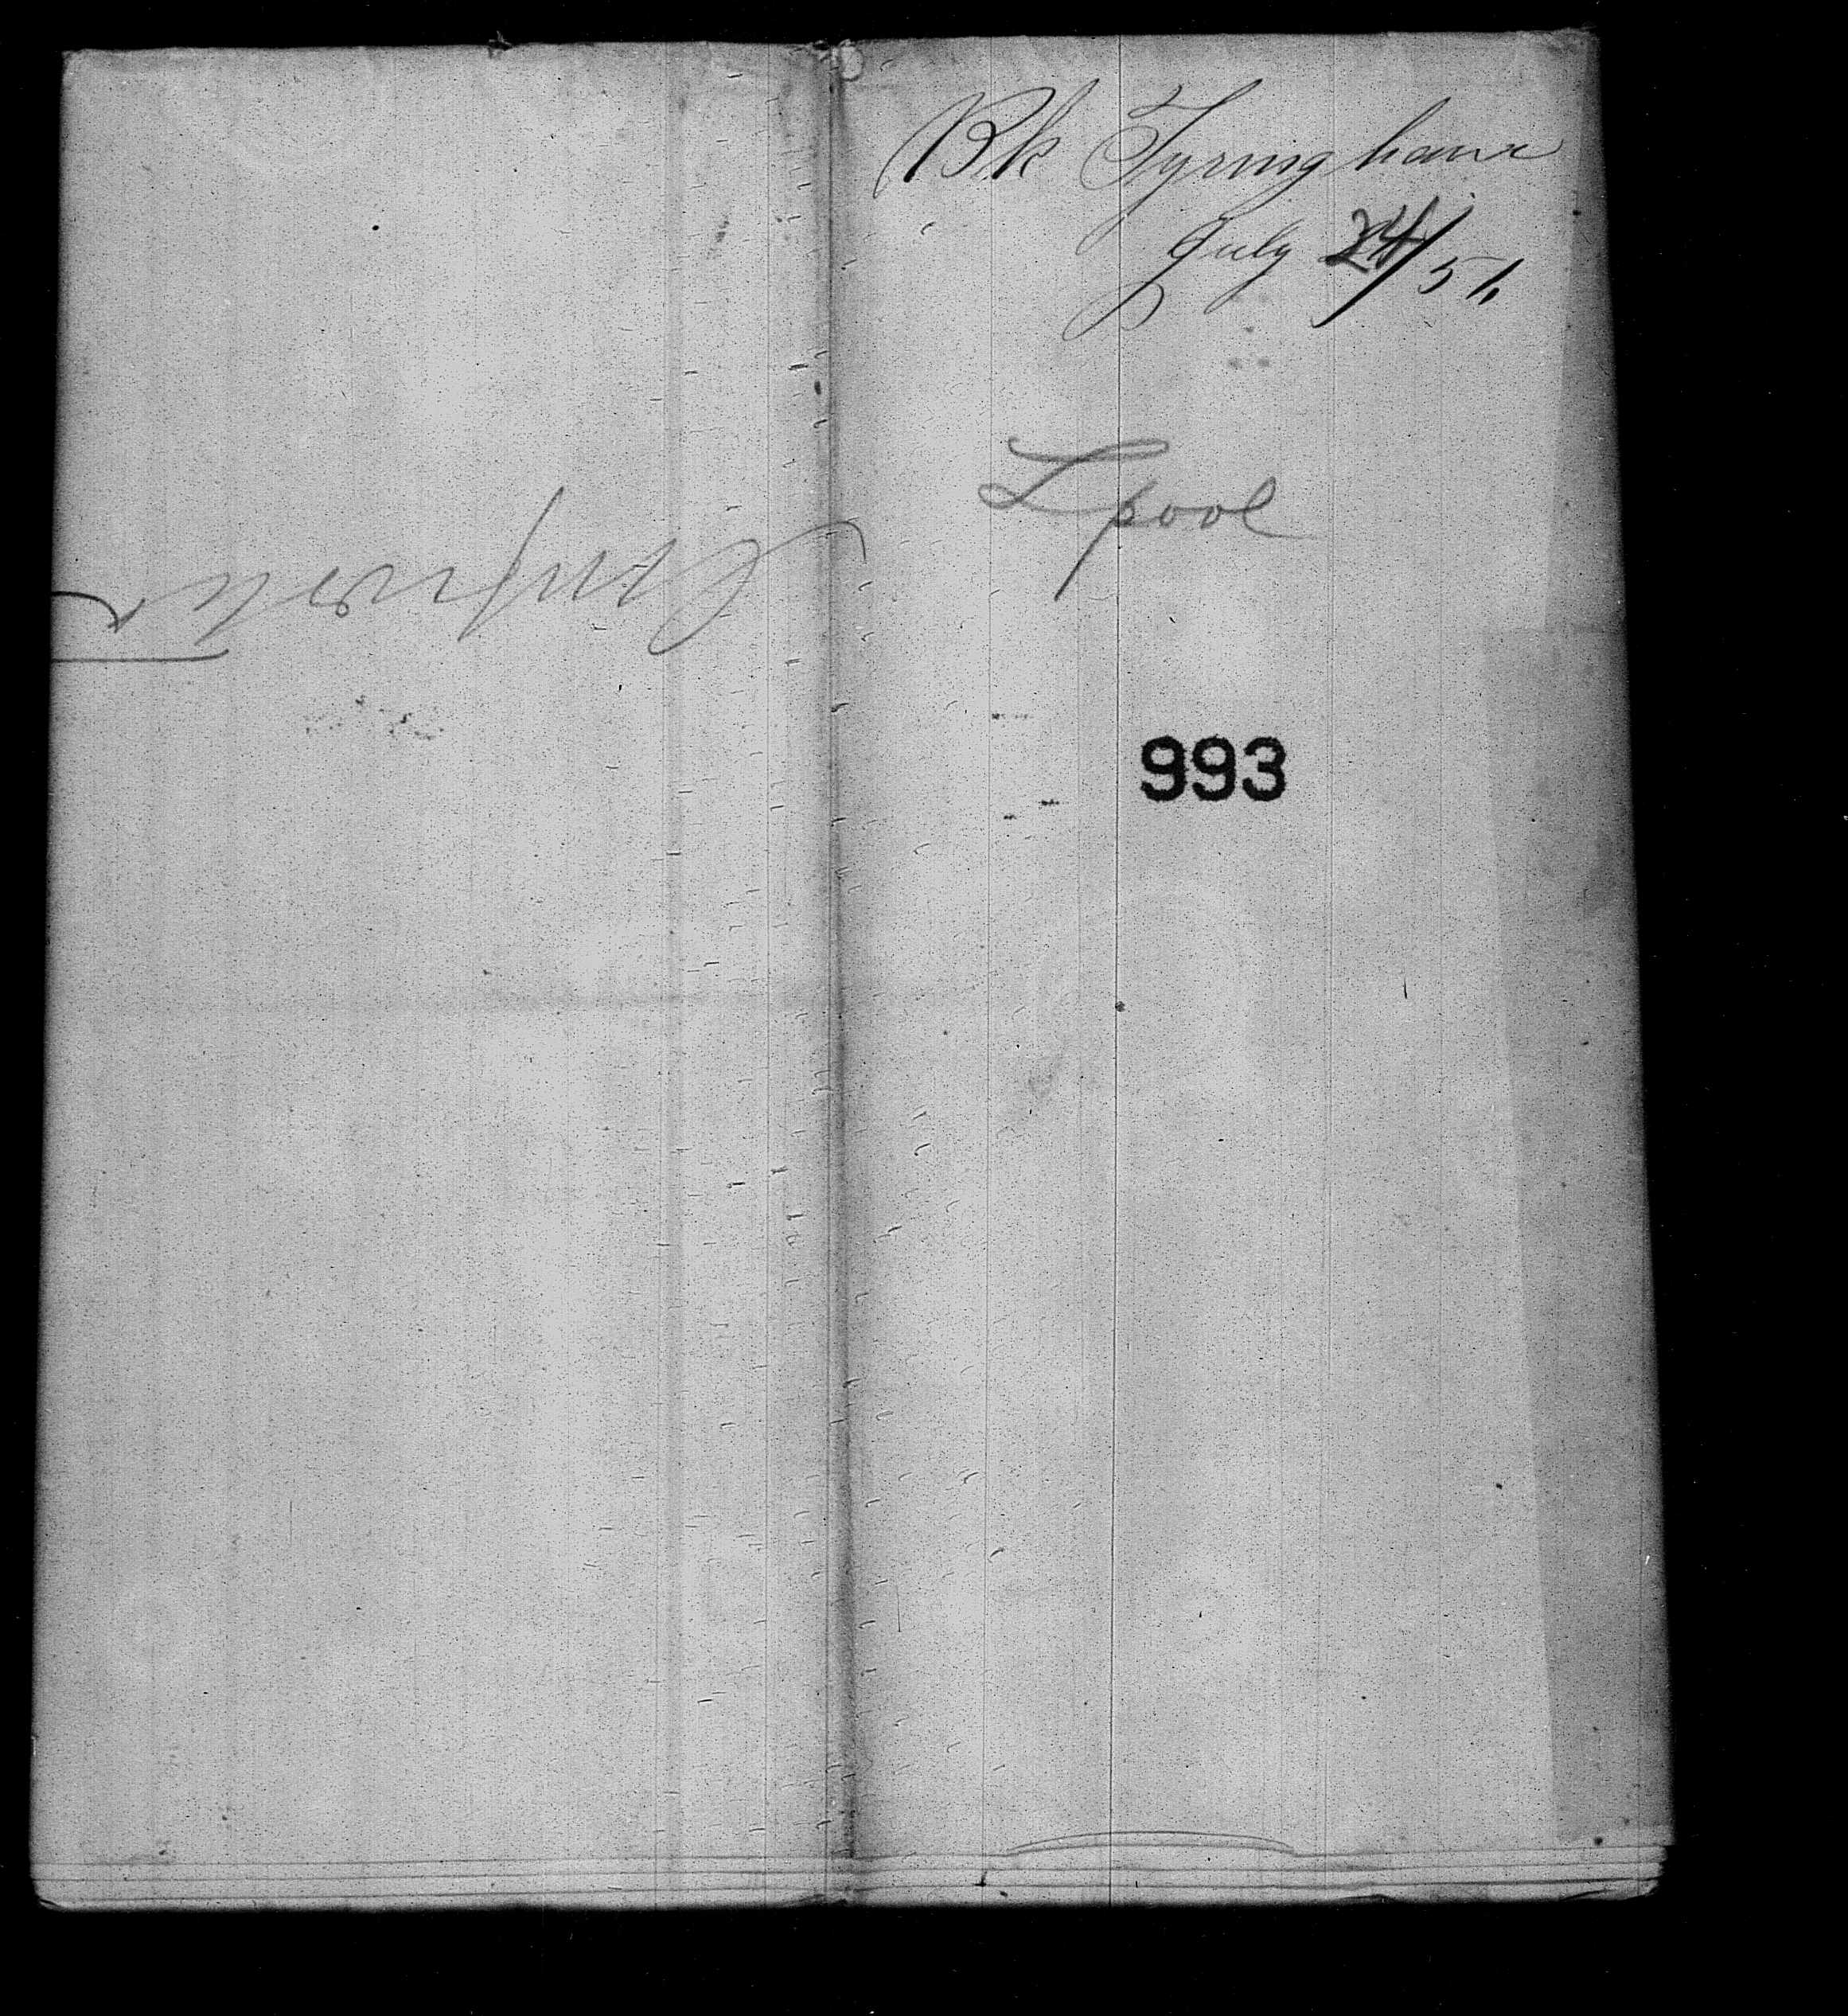 Bk Tyringham
July 24/51
Lpool
993